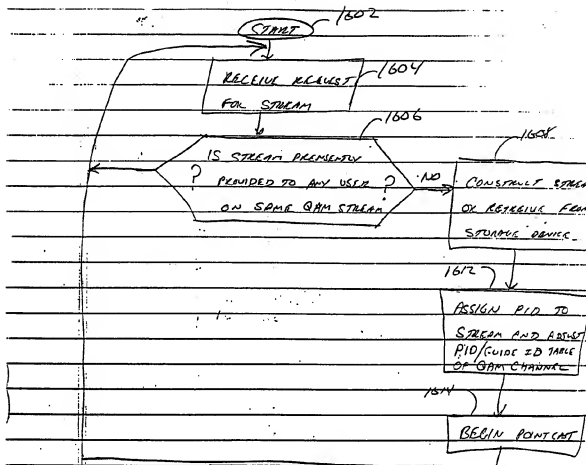 1602
START
1604
RECEIVE REQUEST
FOR STREAM
1606
IS STREAM PRESENTLY
? PROVIDED TO ANY USER ?
ON SAME QAM STREAM
NO
1608
CONSTRUCT STREA
OR RETREIVE FROM
STORAGE DEVICE
1612
ASSIGN PID TO
STREAM AND ADJUST
PID/GUIDE ID TABLE
OF QAM CHANNEL
1614
BEGIN POINTCAST